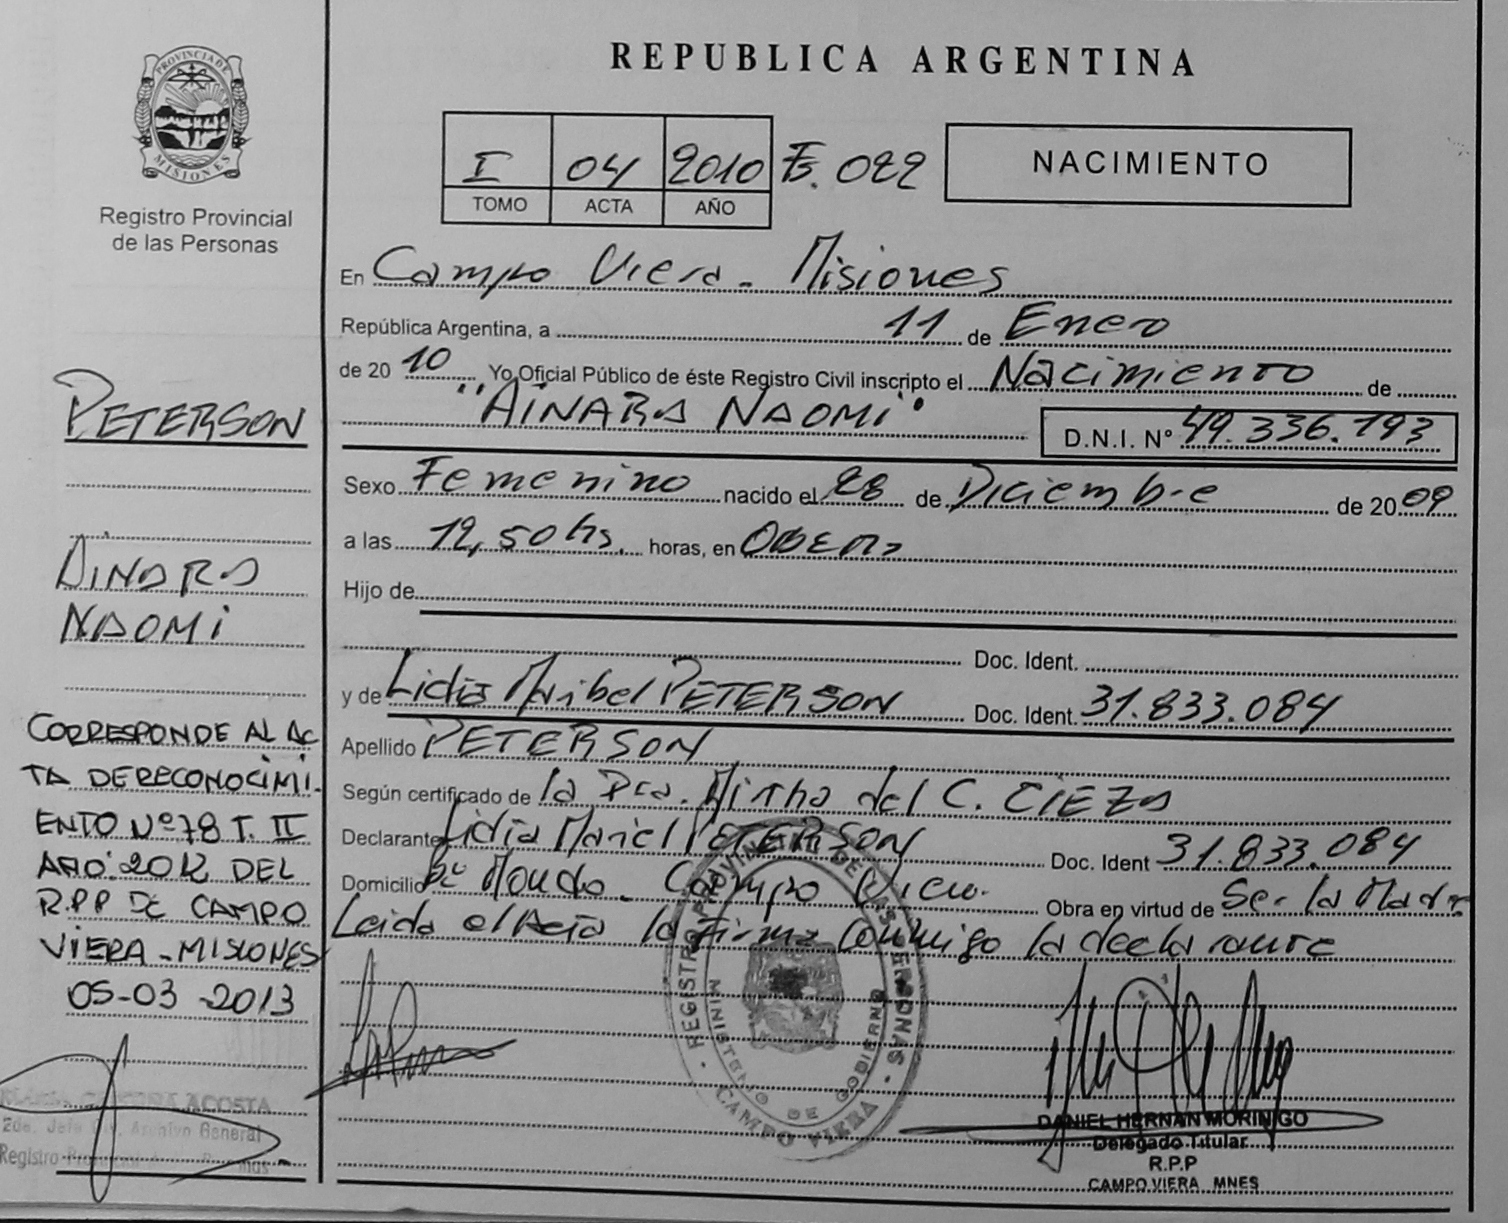 PROVINCIA DE
MISIONES
Registro Provincial
de las Personas
PETERSON
AINARA
NAOMI
CORRESPONDE AL AC
TA DE RECONOCIMI-
ENTO Nº 78 T. II
AÑO: 2012 DEL
R.P.P DE CAMPO
VIERA - MISIONES
05-03-2013
ACOSTA
2do. Jefe Archivo General
Registro
REPUBLICA ARGENTINA
I 04 2010 Fº. 022
TOMO ACTA AÑO
NACIMIENTO
En Campo Viera - Misiones
República Argentina, a 11 de Enero
de 2010 Yo Oficial Público de éste Registro Civil inscripto el Nacimiento de
"AINARA NAOMI"
D.N.I. Nº 49.336.193
Sexo Femenino nacido el 28 de Diciembre de 2009
a las 12,50 hs. horas, en OBERA
Hijo de
Doc. Ident.
y de Lidia Maribel PETERSON Doc. Ident. 31.833.084
Apellido PETERSON
Según certificado de la Dra. Mirtha del C. CIEZA
Declarante Lidia Mariel PETERSON Doc. Ident 31.833.084
Domicilio Bº Mondo - Campo Viera. Obra en virtud de Ser la Madre
Leida el Acta la Firma Conmigo la declarante
REGISTRO PROVINCIAL DE LAS PERSONAS
MINISTERIO DE GOBIERNO
CAMPO VIERA
DANIEL HERNAN MORINIGO
Delegado Titular
R.P.P
CAMPO VIERA MNES